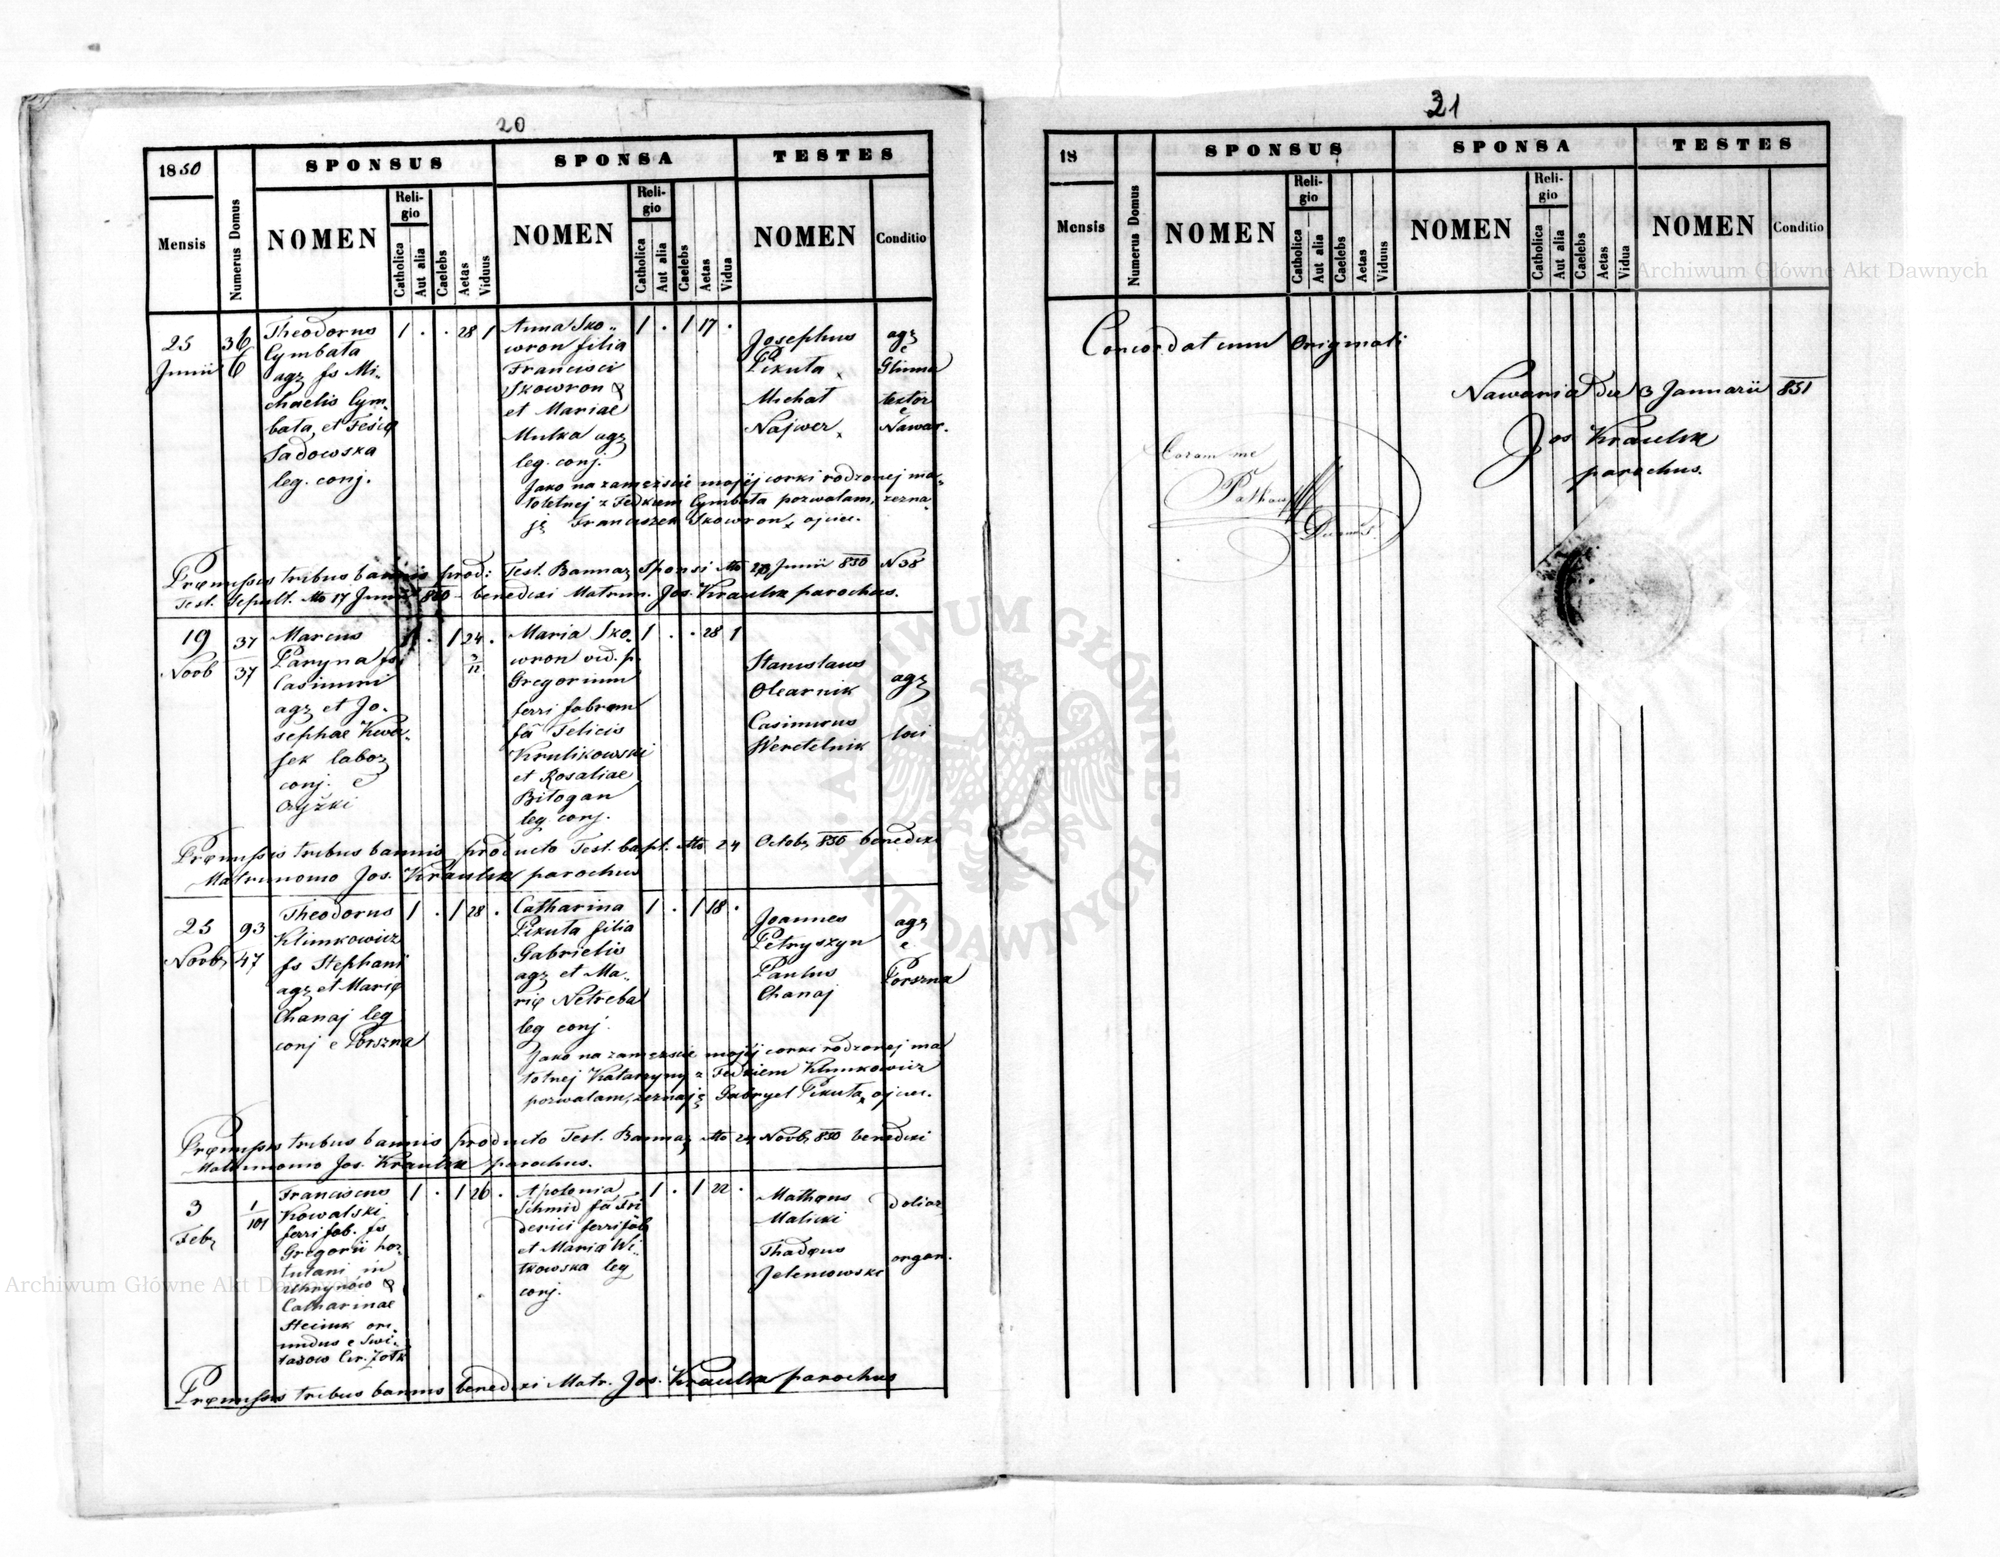 20
1850
SPONSUS
SPONSA
TESTES
Mensis
Numerus Domus
NOMEN
Religio
Catholica
Aut alia
Caelebs
Aetas
Viduus
NOMEN
Religio
Catholica
Aut alia
Caelebs
Aetas
Vidua
NOMEN
Conditio
25
Junii
36
6
Theodorus
Cymbata
agr fs Mi-
chaelis Cym-
bata, et
Sadowska
leg. conj.
1 . . 28 1
Anna Sko-
wron filia
Francisci
Skowron
et Mariae
Mulka agr
leg. conj.
1 . 1 17 .
Josephus
Pikuta x
Michał
Najwer x
agr
e
Glinna
textor
e
Nawar.
Jako na zamezscie mojéj corki rodzonej ma-
łoletnej z Fedkiem Cymbata pozwalam, zezna-
ję Franciszek Skowron x ojciec.
Præmissis tribus bannis prod: Test. Bannar Sponsi Junii 850 N 38
Test. Sepult. 17 850 benedixi Matrim. Jos. Kraulik parochus.
19
Novb
37
37
Marcus
Paryna fs
Casimiri
agr et Jo-
sephae Kwa-
sek labor
conj. e
1 . 1 24 .
3
12
Maria Sko-
wron vid. p.
Gregorium
ferri fabrum
fa Felicis
Krulikowski
et Rosaliae
Biłogan
leg. conj.
1 . . 28 1
Stanislaus
Olearnik
Casimirus
Weretelnik
agr
loci
Præmissis tribus bannis producto Test. bapt. 24 Octobr 850 benedixi
Matrimonio Jos. Kraulik parochus
25
Novb
93
47
Theodorus
Klimkowicz
fs Stephani
agr et Mariæ
Chanaj leg
conj e Porszna
1 . 1 28 .
Catharina
Pikuta filia
Gabrielis
agr et Ma-
riæ Netreba
leg conj.
1 . 1 18 .
Joannes
Petryszyn
Paulus
Chanaj
agr
e
Porszna
Jako na zamezscie mojéj corki rodzonej ma
łolnej Katarzyny z Fedkiem Klimkowicz
pozwalam, zeznaję Gabryel Pikuta x ojciec.
Præmissis tribus bannis producto Test. Bannar 24 Novb 850 benedixi
Matrimonio Jos. Kraulik parochus.
3
Febr
1
101
Franciscus
Kowalski
ferri fab. fs
Gregorii hor-
tulani in
Catharinae
ori-
undus e Swi-
tazow Cir. Żołk
1 . 1 26 .
Apolonia
Schmid fa Fri
derici ferri fab
et Mariæ Wi-
tkowska leg
conj.
1 . 1 22 .
Mathæus
Malicki
Thadæus
Jeleniowski
doliar
organ.
Præmissis tribus bannis benedixi Matr. Jos. Kraulik parochus
21
18
SPONSUS
SPONSA
TESTES
Mensis
Numerus Domus
NOMEN
Religio
Catholica
Aut alia
Caelebs
Aetas
Viduus
NOMEN
Religio
Catholica
Aut alia
Caelebs
Aetas
Vidua
NOMEN
Conditio
Concordat cum Originali
Nawaria die 3 Januarii 851
Jos Kraulik
parochus.
Coram me
Archiwum Główne Akt Dawnych
Archiwum Główne Akt Dawnych
ARCHIWUM GŁÓWNE AKT DAWNYCH